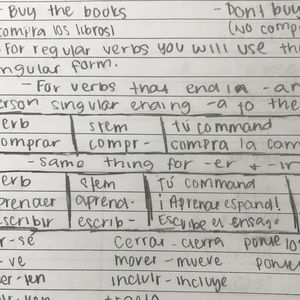 - Buy the books - Don't buy
compra los libros! (No comp
For regular verbs you will use th
ngular form.
- For verbs that end in -ar
erson singular ending -a to the
erb stem tú command
omprar compr- compra la com
- same thing for -er & -ir
erb stem Tú command
aprend- ¡Aprende español!
scribir escrib- Escribe el ensayo
r-sé cerrar-cierra
-ve mover-mueve
er-ven incluir-incluye